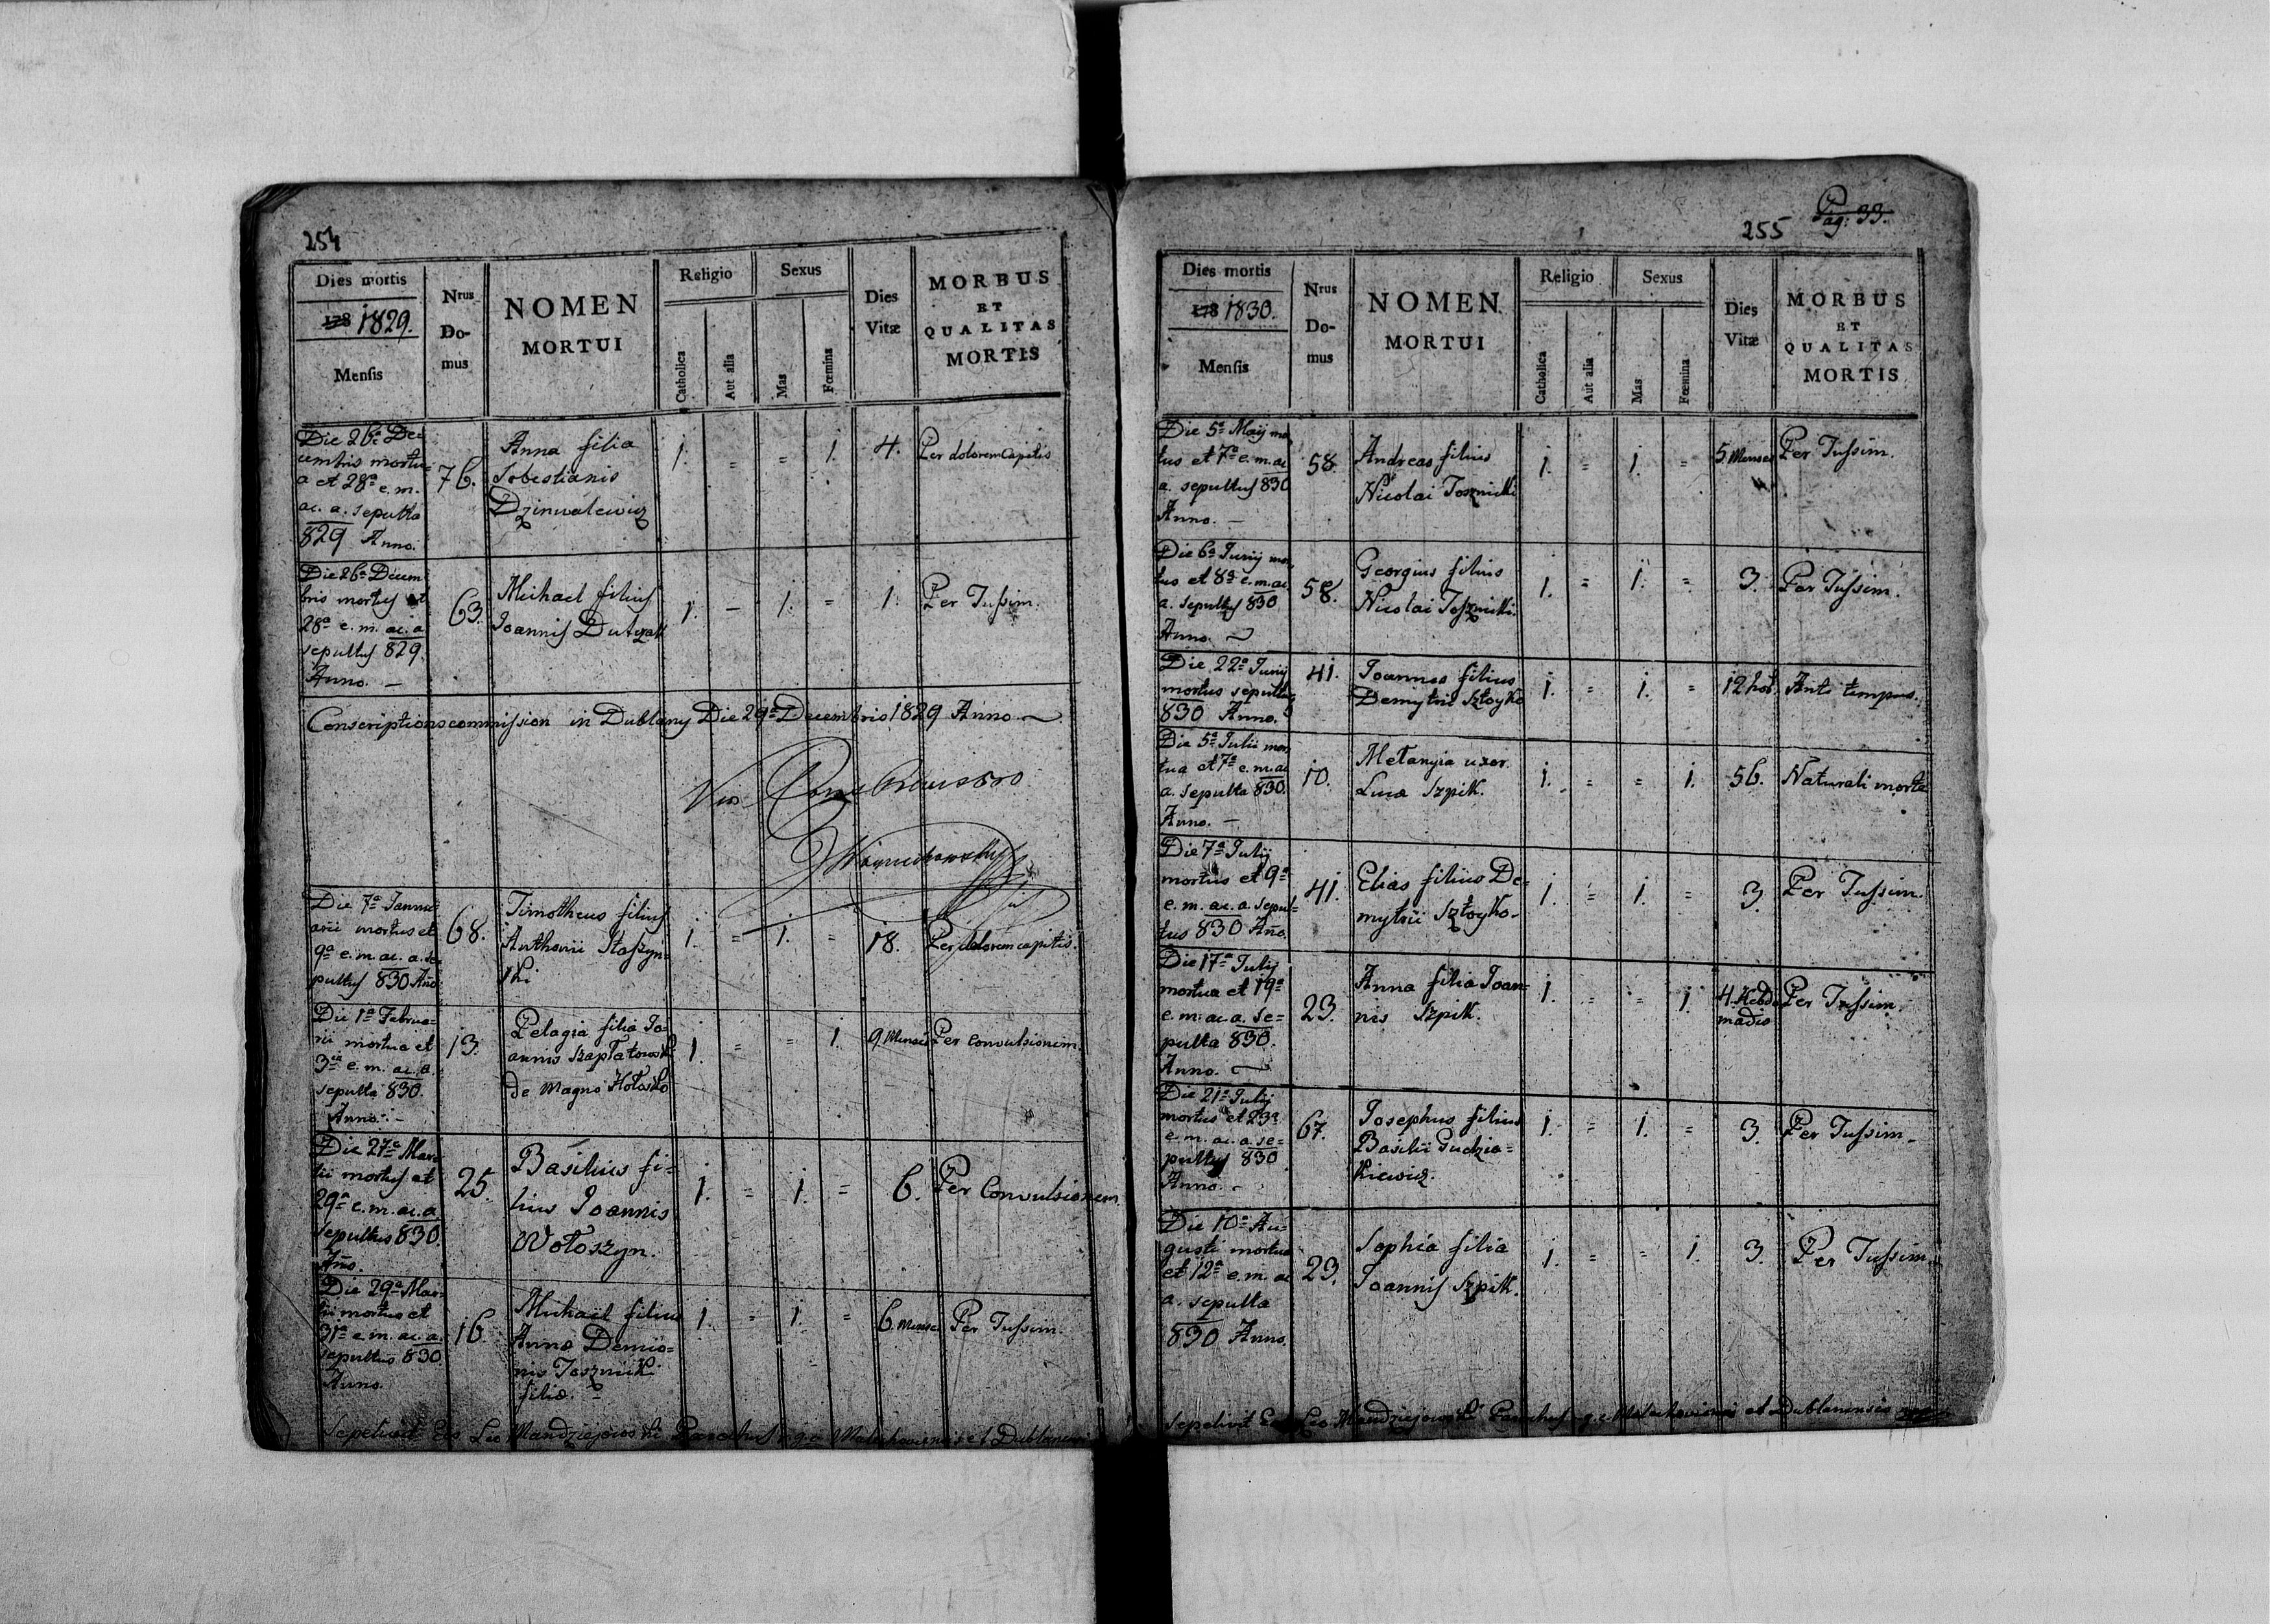 254
Dies mortis
178 1829.
Mensis
Nrus
Do-
mus
NOMEN
MORTUI
Religio
Catholica
Aut alia
Sexus
Mas
Fœmina
Dies
Vitæ
MORBUS
ET
QUALITAS
MORTIS
Die 26a De-
cembris mortu-
a et 28a e. m.
ac. a. sepulta
829 Anno.
76.
Anna filia
Sobestianis
Dzinwalewicz
1. = = 1. 4.
Per dolorem capitis
Die 26a Decem
bris mortus et
28a e. m. ac. a
sepultus 829.
Anno. —
63.
Michael filius
Joannis Dutczak
1. – 1. = 1.
Per Tussim.
Conscriptionscommission in Dublany Die 29a Decembris 1829 Anno —
Die 7a Janu-
arii mortus et
9a e. m. ac. a. se-
pultus 830 Año
68.
Timotheus filius
Anthonii Staszyn-
ski
1. = 1. = 18.
Per dolorem capitis.
Die 1a Februa-
rii mortua et
3a e. m. ac. a.
sepulta 830.
Anno. –
13.
Pelagia filia Jo-
annis Szaptatowski
de Magno Hołosko
1. = = 1. 9. Mensis
Per convulsionem.
Die 27a Mar-
tii mortus et
29a e. m. ac. a
sepultus 830.
Año.
25.
Basilius fi-
lius Joannis
Wołoszyn.
1. = 1. = 6.
Per Convulsionem
Die 29a Mar-
tii mortus et
31a e. m. ac. a.
sepultus 830
Anno.
16.
Michael filius
Annæ Demio-
nis Josznicki
filiæ. –
1. = 1. = 6. Menses
Per Tussim.
Sepelivit Eos Leo Mandziejowski Parochus r. g. c. Malechoviensis et Dublanensis
255
Pag: 33.
Dies mortis
178 1830.
Mensis
Nrus
Do-
mus
NOMEN
MORTUI
Religio
Catholica
Aut alia
Sexus
Mas
Fœmina
Dies
Vitæ
MORBUS
ET
QUALITAS
MORTIS
Die 5a Maij mor-
tus et 7a e. m. ac
a. sepultus 830
Anno. —
58.
Andreas filius
Nicolai Josznicki
1. = 1. = 5. Menses
Per Tussim.
Die 6a Junij mor-
tus et 8a e. m. ac
a. sepultus 830
Anno. —
58.
Georgius filius
Nicolai Josznicki.
1. = 1. = 3.
Per Tussim.
Die 22a Junij
mortus sepultus
830 Anno.
41.
Joannes filius
Demytrii Sztoyko
1. = 1. = 12 hor.
Ante tempus.
Die 5a Julii mor-
tua et 7a e. m. ac
a. sepulta 830.
Anno. —
10.
Metanyia uxor
Lucæ Szpik.
1. = = 1. 56.
Naturali morte
Die 7a Julij
mortus et 9a
e. m. ac. a. sepul-
tus 830 Año.
41.
Elias filius De-
mytrii Sztoyko.
1. = 1. = 3.
Per Tussim.
Die 17a Julij
mortua et 19a
e. m. ac. a. se-
pulta 830.
Anno. —
23.
Anna filia Joan-
nis Szpik.
1. = = 1. 4. Hebdo
madis
Per Tussim.
Die 21a Julij
mortus et 23a
e. m. ac. a. se-
pultus 830
Anno. –
67.
Josephus filius
Basilii Gudzio-
kiewicz.
1. = 1. = 3.
Per Tussim.
Die 10a Au-
gusti mortua
et 12a e. m. ac
a. sepulta
830 Anno.
23.
Sophia filia
Joannis Szpik.
1. = = 1. 3.
Per Tussim.
Sepelivit Eos Leo Mandziejowski Parochus r. g. c. Malechoviensis et Dublanensis